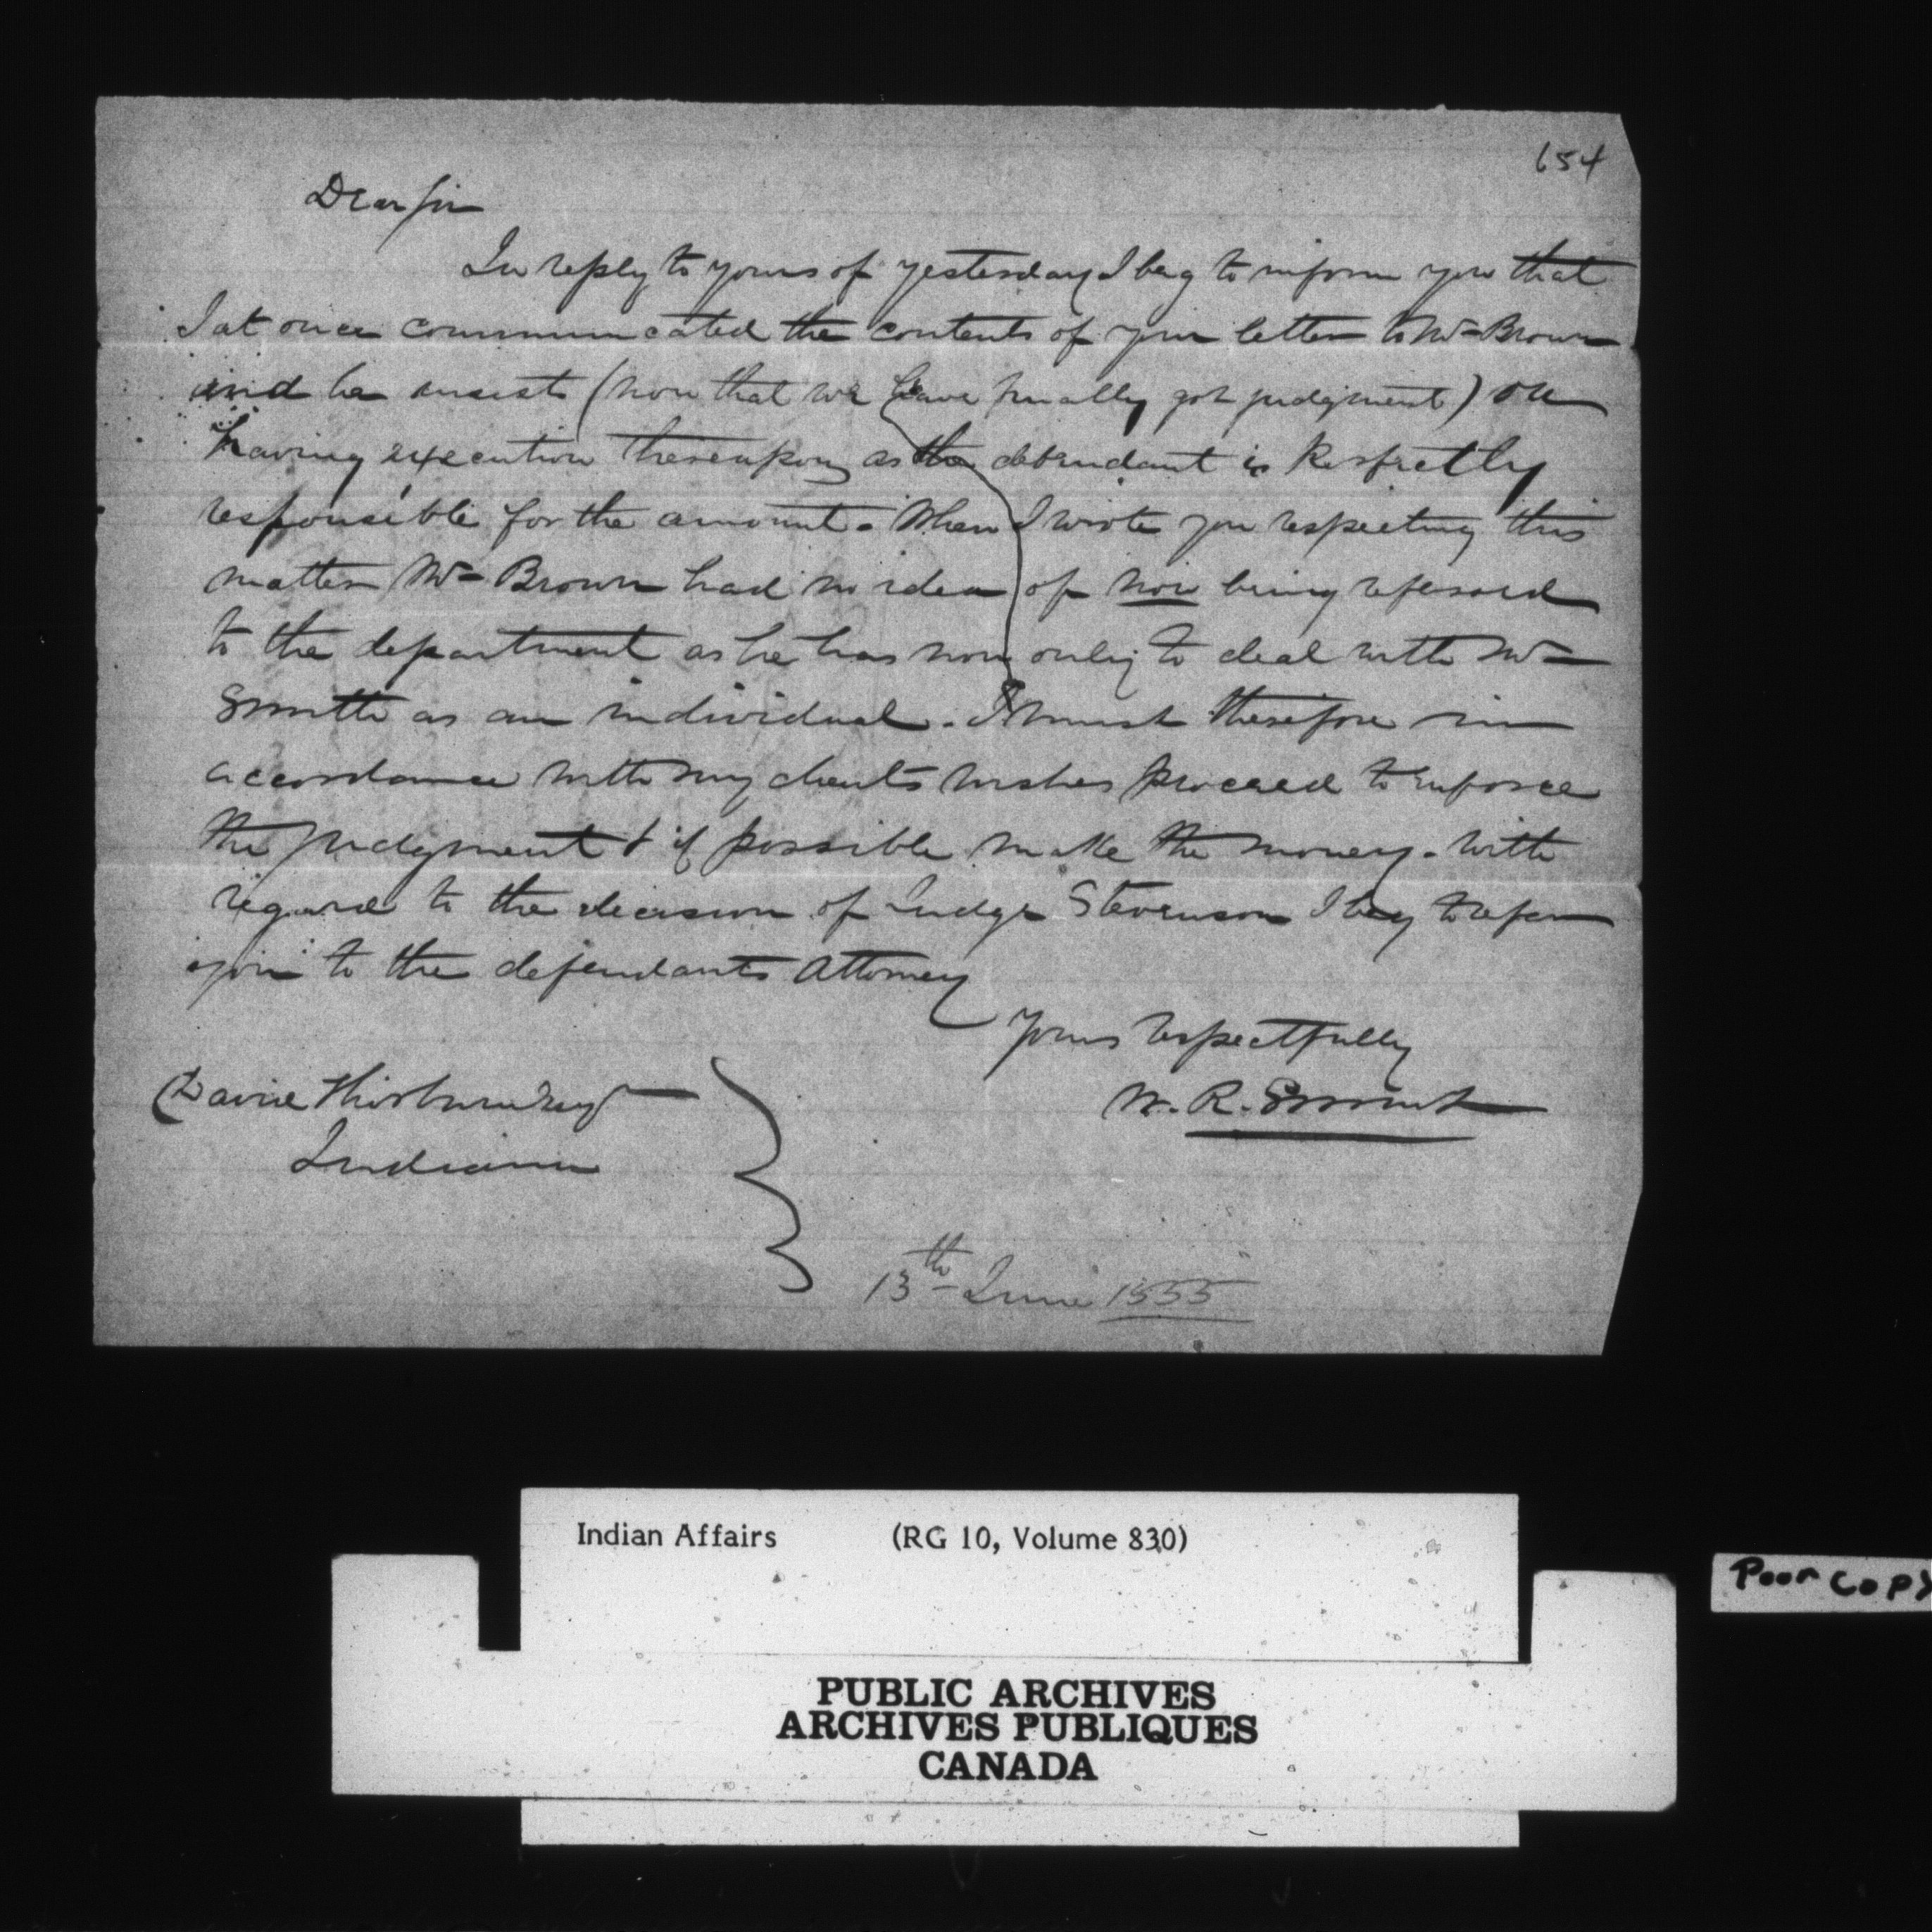 654
Dear Sir
In reply to yours of yesterday I beg to inform you that
I at once communicated the contents of your letter to Mr Brown
and he insists (now that we have finally got judgment) on
having execution thereupon as the defendant is perfectly
responsible for the amount. When I wrote you respecting this
matter Mr Brown had no idea of now being refered
to the department as he has now only to deal with Mr
Smith as an individual. I must therefore in
accordance with my clients wishes proceed to enforce
the judgment & if possible make the money. With
regard to the decision of Judge Stevenson I beg to refer
you to the defendants Attorney
Yours respectfully
David Thorburn Esqr
W. R.
Indiana
13th June 1855
Indian Affairs (RG 10, Volume 830)
Poor Copy
PUBLIC ARCHIVES
ARCHIVES PUBLIQUES
CANADA